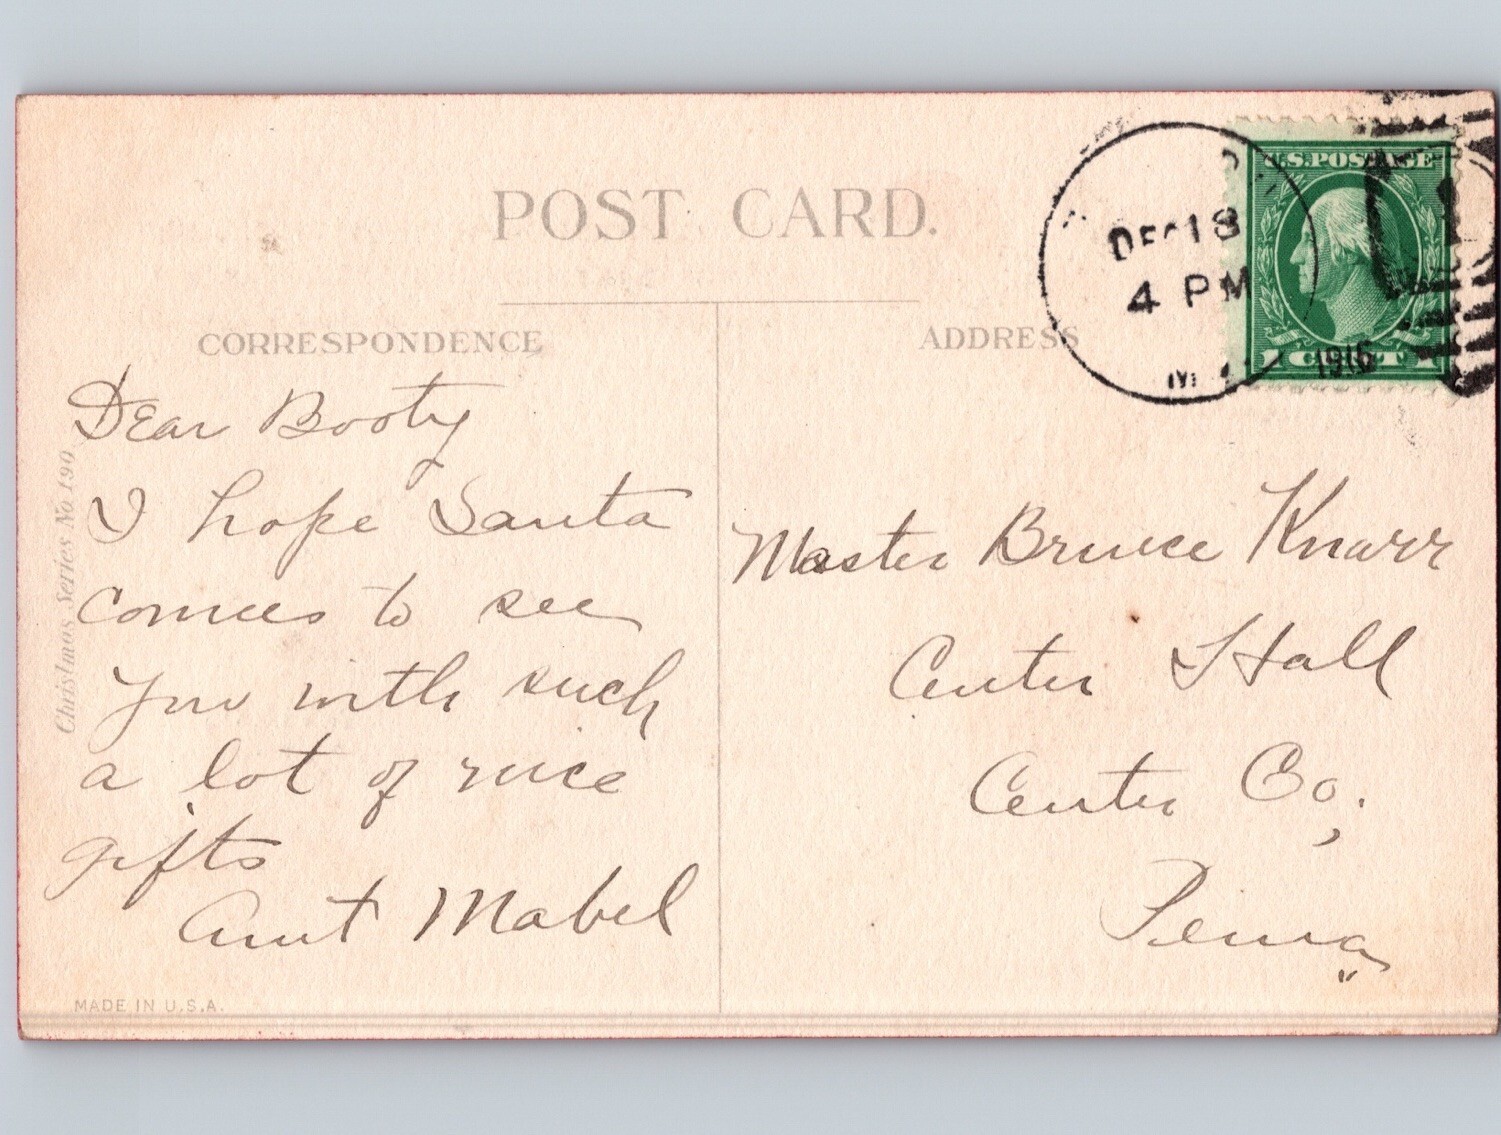 POST CARD.
U.S. POSTAGE
DEC 18
4 PM
1916
1 CENT 1
CORRESPONDENCE
ADDRESS
Dear Booty
I hope Santa
comes to see
you with such
a lot of nice
gifts
Aunt Mabel
Master Bruce Knarr
Center Hall
Center Co.,
Penna
Christmas Series No 190.
MADE IN U.S.A.